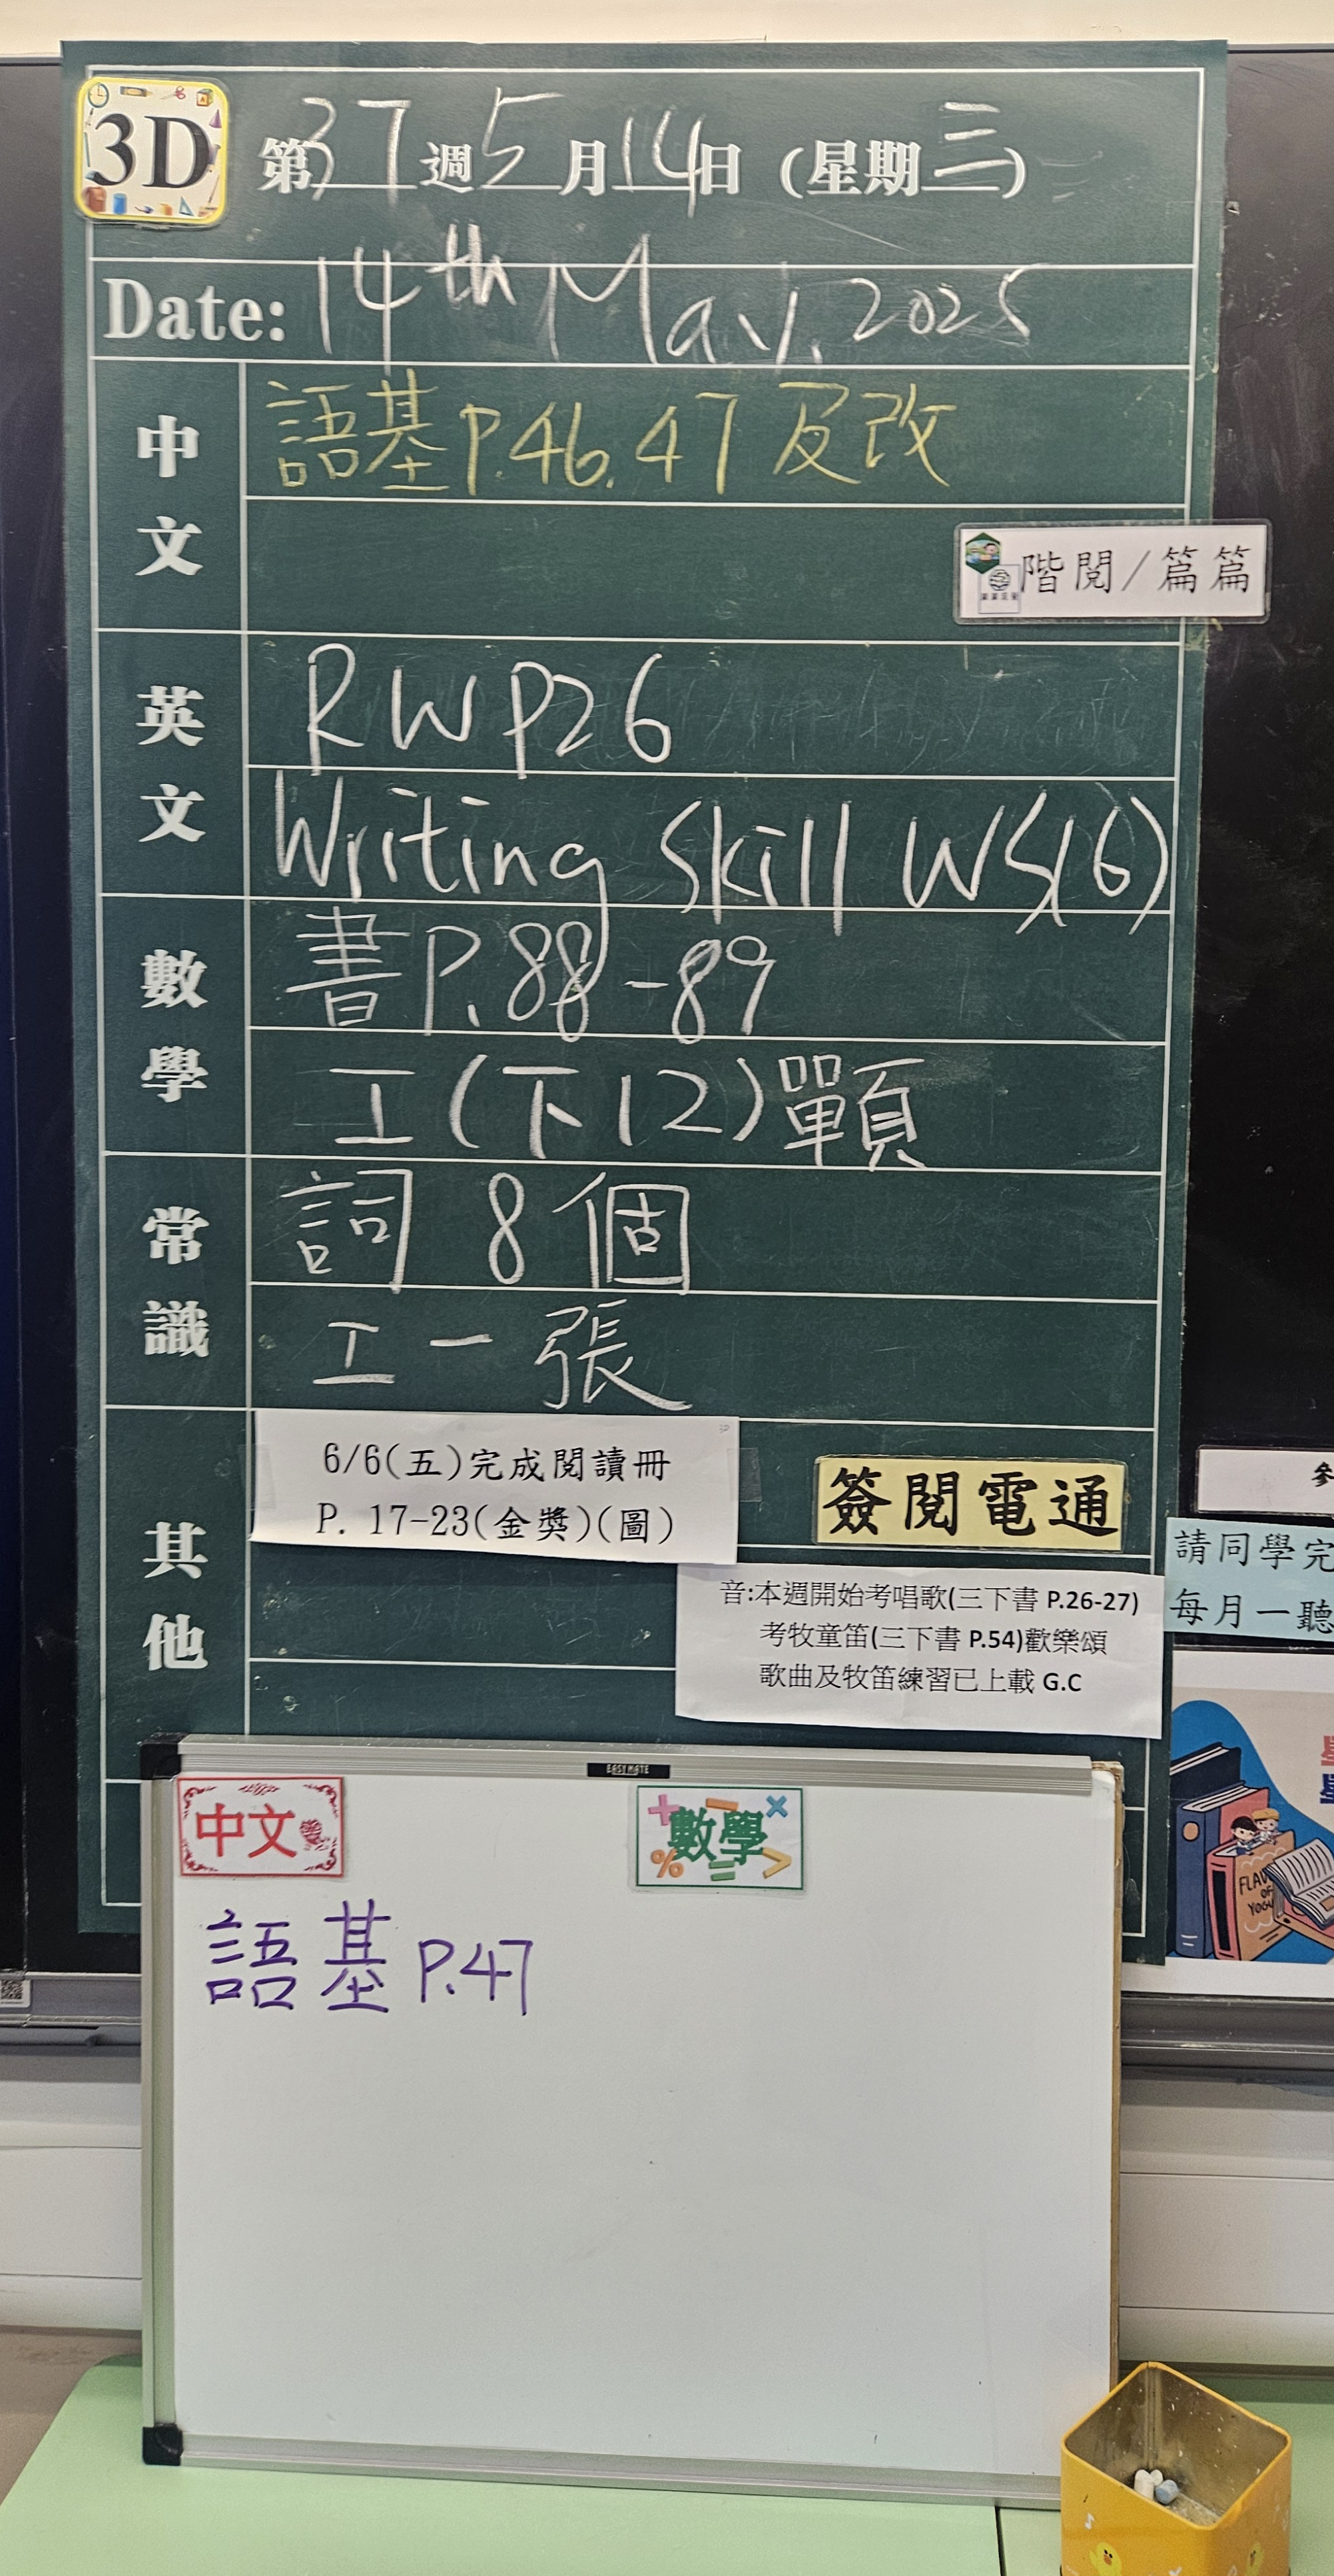 3D
第37週5月14日(星期三)
Date: 14th May, 2025
中文
語基P.46,47及改
階閱/篇篇
英文
RWP26
Writing Skill WS(6)
數學
書P.88-89
工(下12)單頁
常識
詞 8個
工一張
其他
6/6(五)完成閱讀冊
P. 17-23(金獎)(圖)
簽閱電通
音:本週開始考唱歌(三下書 P.26-27)
考牧童笛(三下書 P.54)歡樂頌
歌曲及牧笛練習已上載 G.C
參
請同學完
每月一聽
EASYMATE
中文
數學
語基 P.47
FLAV
OF
YOGU